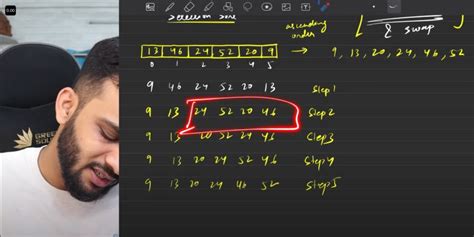 0:00
Selection Sort
ascending order
& swap
13 46 24 52 20 9
0 1 2 3 4 5
→ 9, 13, 20, 24, 46, 52
9 46 24 52 20 13 Step1
9 13 24 52 20 46 Step2
9 13 20 52 24 46 Step3
9 13 20 24 52 46 Step4
9 13 20 24 46 52 Step5